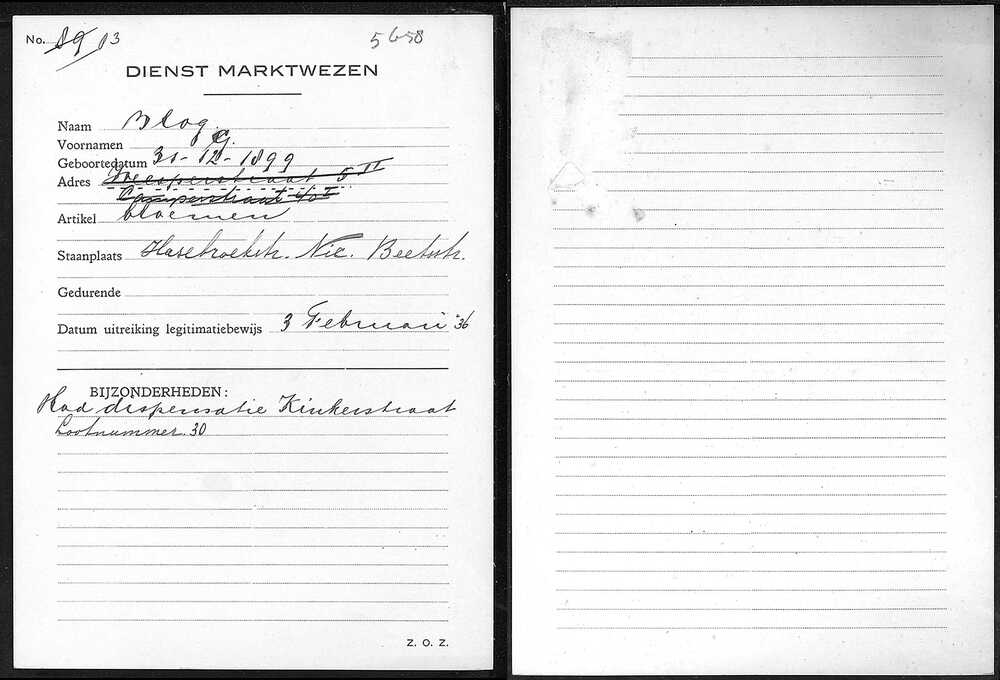 No. 89 13
5658
DIENST MARKTWEZEN
Naam Blog
Voornamen G.
Geboortedatum 31-12-1899
Adres Weesperstraat 5 II
Camperstraat 40 I
Artikel bloemen
Staanplaats Hasebroekstr. Nic. Beetsstr.
Gedurende
Datum uitreiking legitimatiebewijs 3 Februari '36
BIJZONDERHEDEN:
Had dispensatie Kinkerstraat
Lootnummer 30
Z. O. Z.